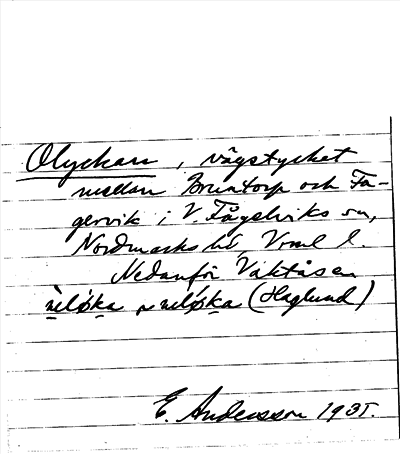 Olyckan, vägstycket
mellan Bruntorp och Fa-
gervik i V. Fågelviks sn,
Nordmarks hd, Vrml l.
Nedanför Vaktåsen
(Haglund)
E. Andersson 1931.